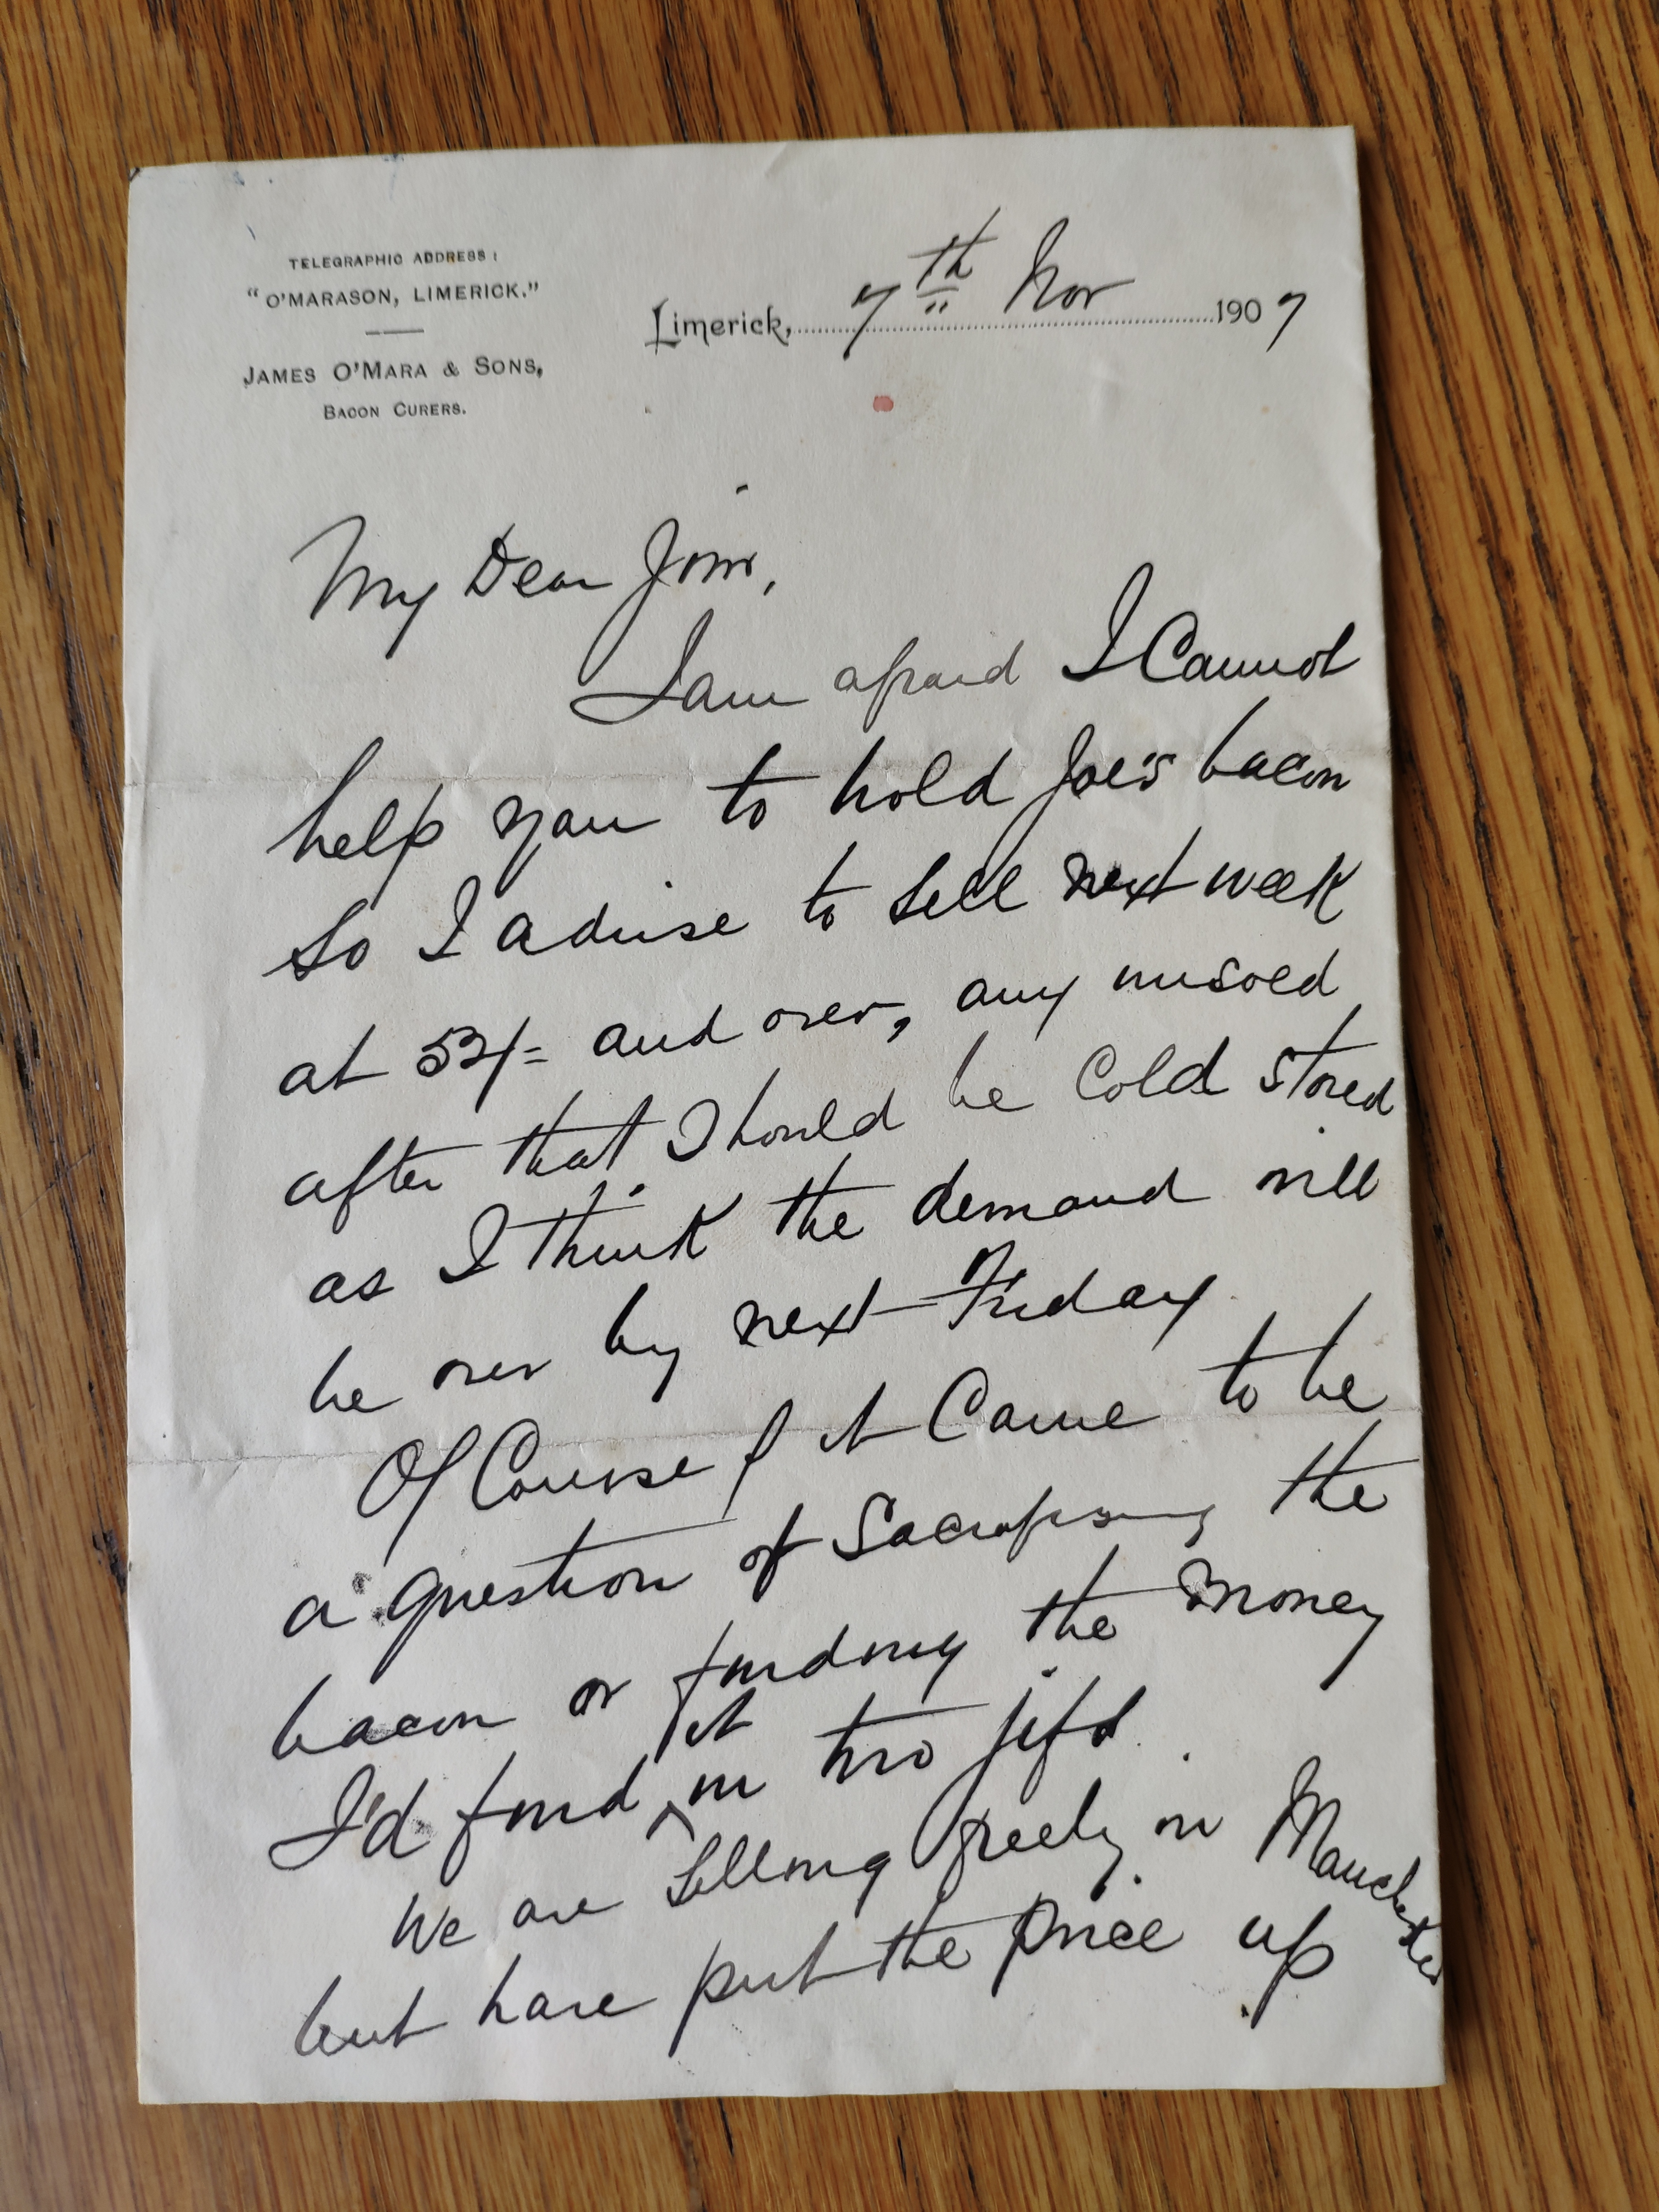 TELEGRAPHIC ADDRESS:
"O'MARASON, LIMERICK."
JAMES O'MARA & SONS,
BACON CURERS.
Limerick, 7th Nov 1907
My Dear Jim,
I am afraid I Cannot
help you to hold Joe's bacon
So I advise to Sell next week
at 52/= and over, any unsold
after that Should be Cold Stored
as I think the demand will
be over by next Friday
Of Course if it Came to be
a question of Sacrificing the
bacon or finding the money
I'd find it in two
We are Selling freely in Manchester
but have put the price up